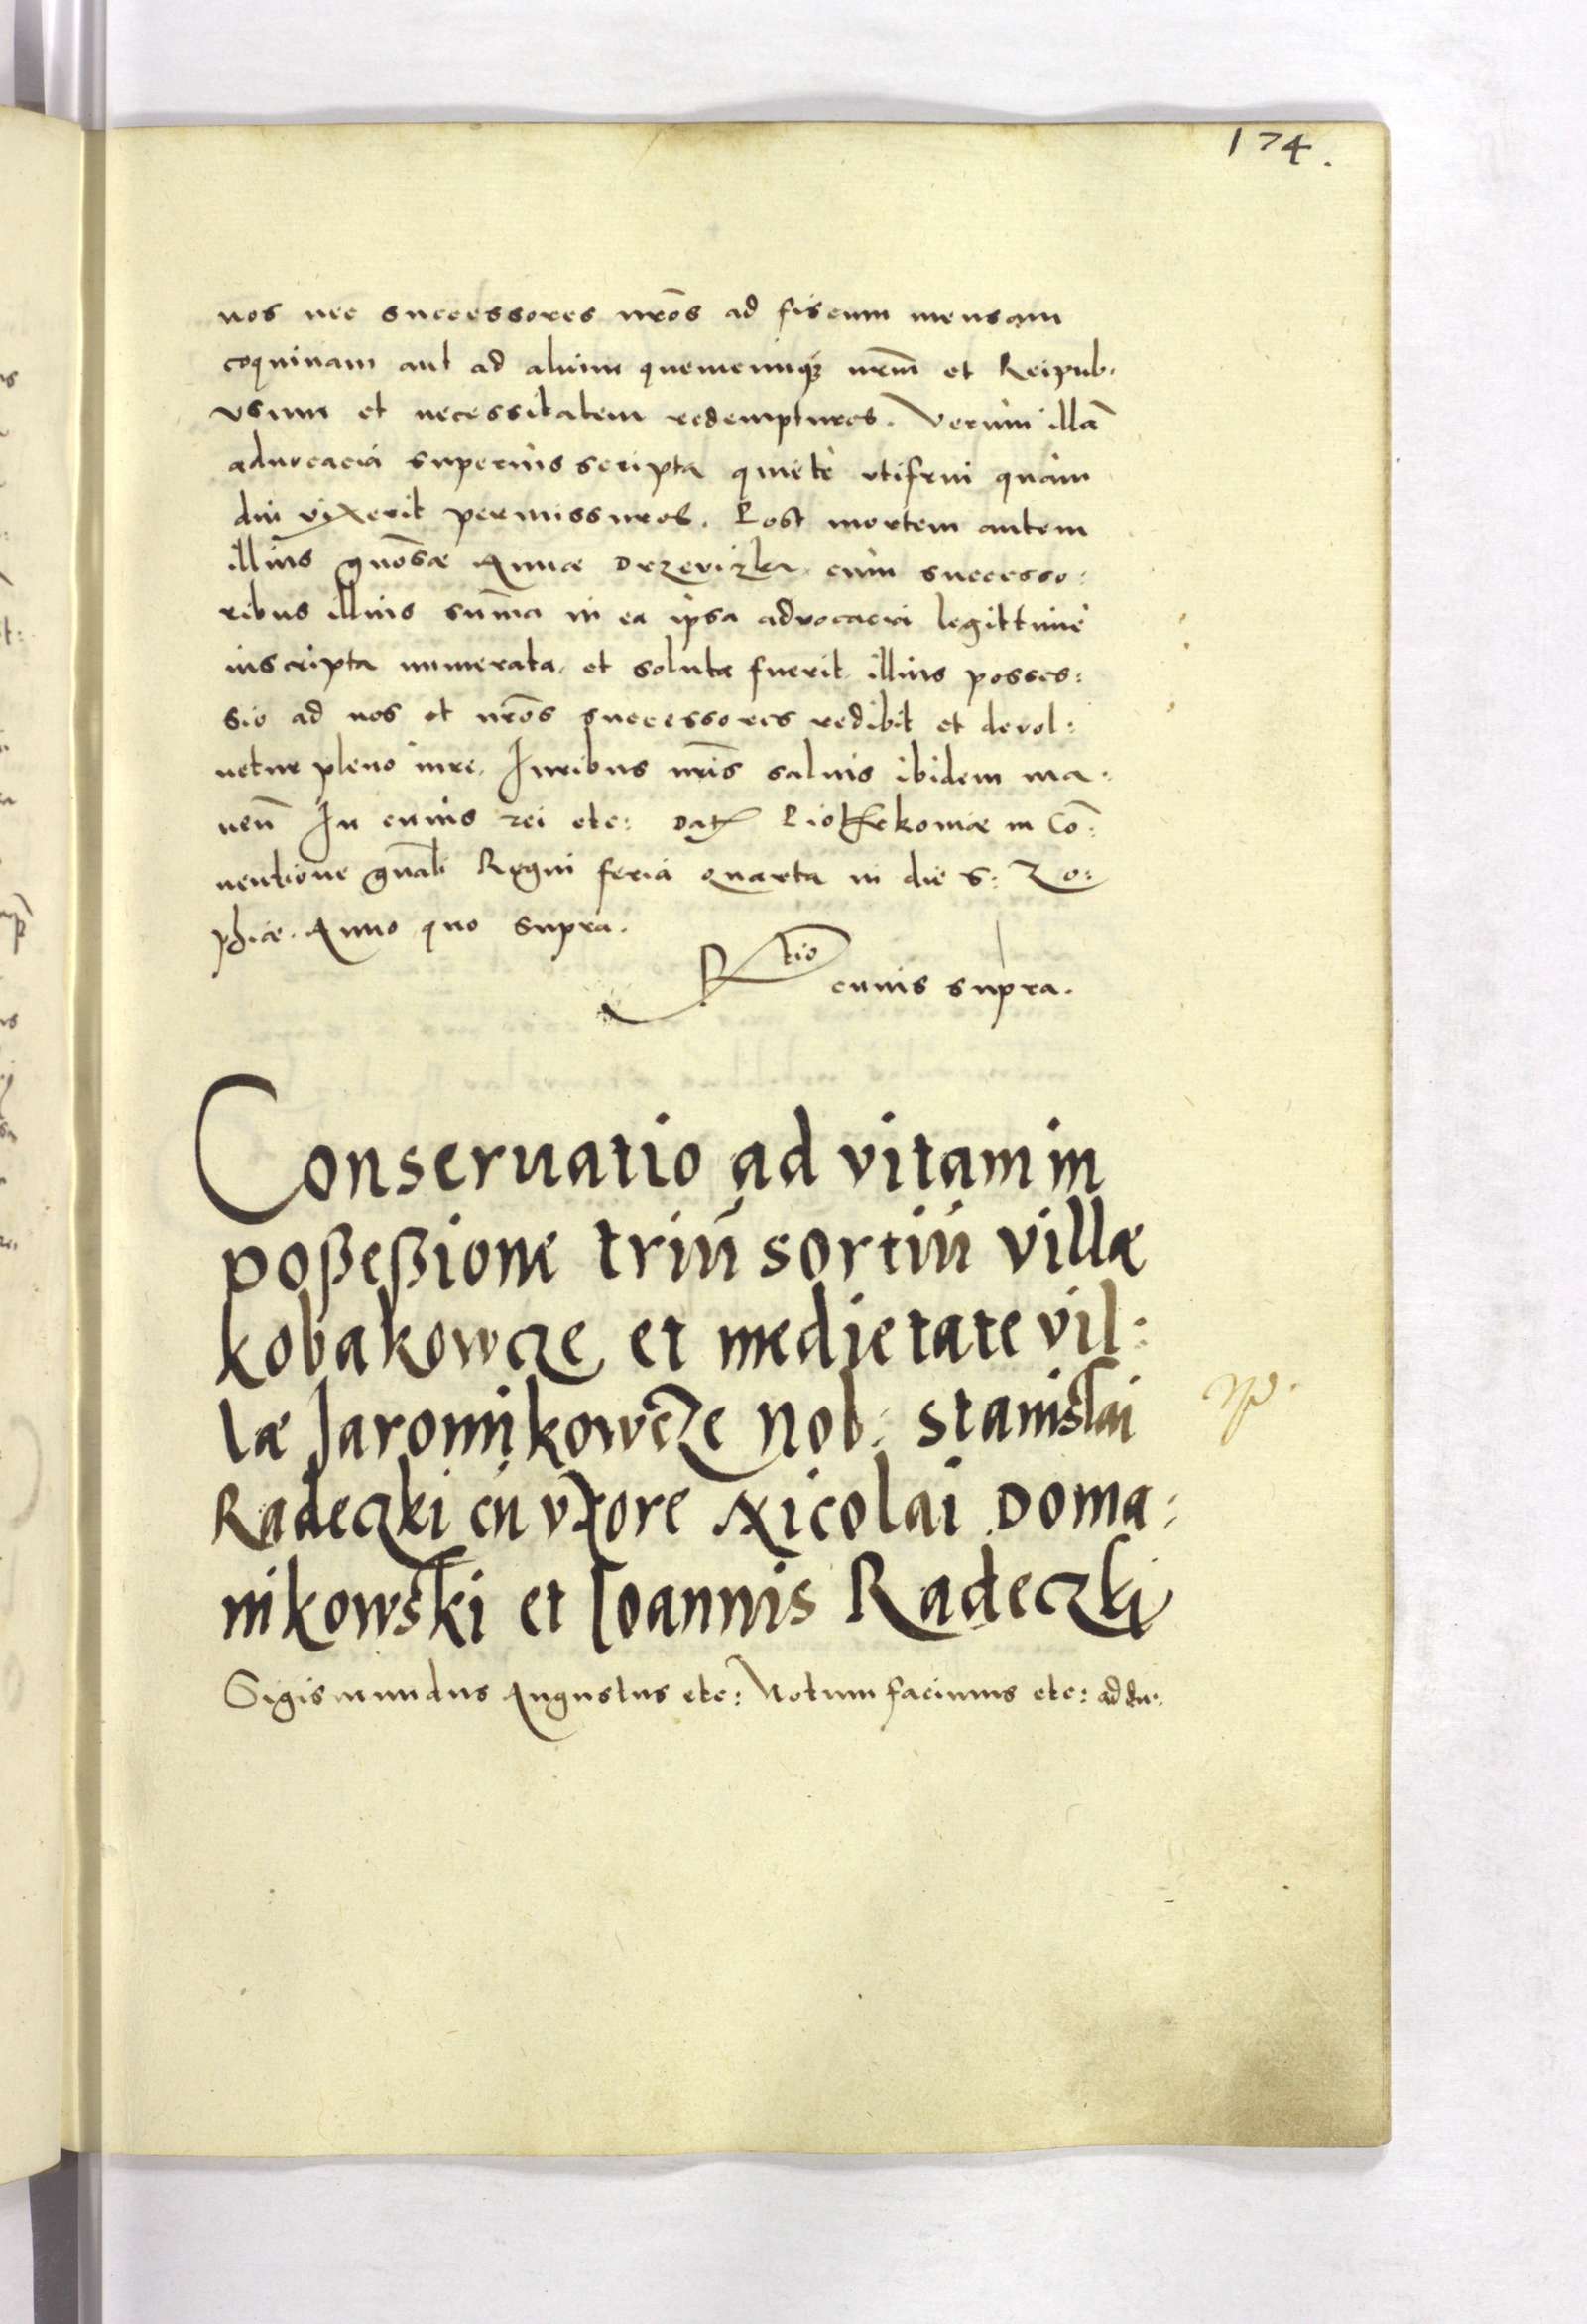 174.
nos nec successores nr̃os ad fiscum mensam
coquinam aut ad alium quemcunq̃ nr̃m et Reipub.
vsum et necessitatem redempturos. Verum illã
aduocacia superius scripta quietè vtifrui quàm
diu vixerit permissuros. Post mortem autem
illius gnõsæ Annæ Drzewizka cùm successo:
ribus illius sum̃a in ea ipsa advocacia legittimè
inscripta numerata et soluta fuerit illius posses:
sio ad nos et nr̃os successores redibit et devol:
uetur pleno iure, Iuribus nr̃is saluis ibidem ma:
neñ In cuius rei etc: Dat Piotrkoniæ in Cõ:
nentione gñali Regni feria quarta in die S: Zo:
phiæ. Anno quo supra.
Rtio
cuius supra.
Conseruatio ad vitam in
poßeßione triũ sortiũ villæ
kobakowcze et medietate vil:
læ Jaromikowcze Nob: Stanislai
Radeczki cũ vxore Nicolai Doma:
nikowski et Ioannis Radeczki
Sigismundus Augustus etc: Notum facimus etc: ad du: